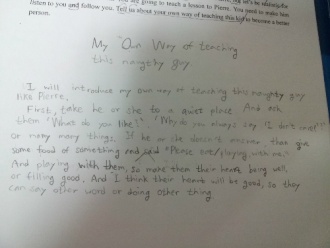 listen to you and follow you. Tell us about your own way of teaching this kid to become a better
person.
My Own Way of teaching
this naughty guy
I will introduce my own way of teaching this naughty guy
like Pierre.
First, take he or she to a quiet place. And ask
them "What do you like?" "Why do you always say 'I don't care!'"
or many many things. If he or she doesn't answer that give
some food of something and said "Please eat/playing with me."
And playing with them, so make them their heart being well,
or filling good. And I think their heart will be good, so they
can say other word or doing other thing